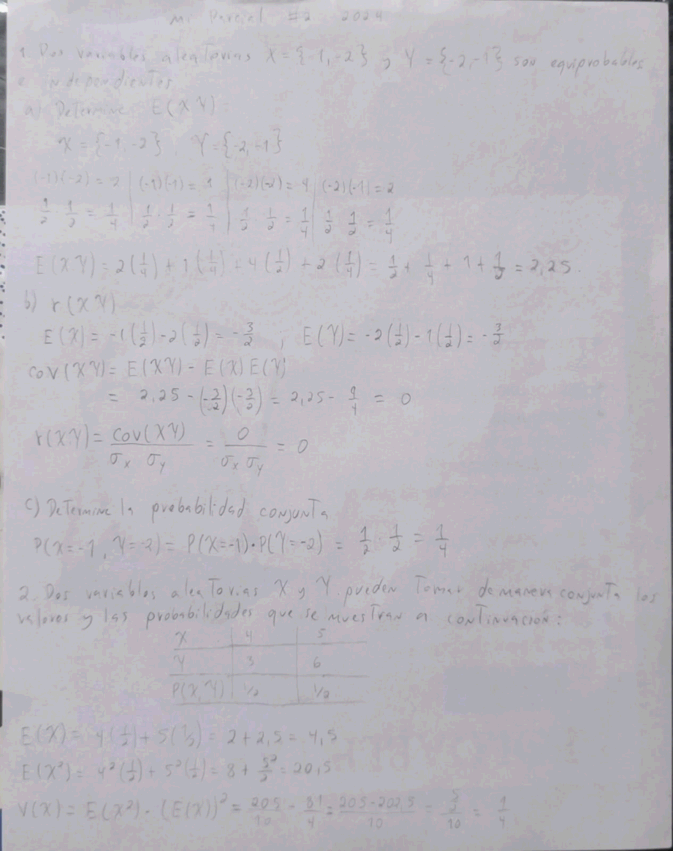 Mi Parcial #2 2024
1. Dos variables aleatorias X={-1,-2} y Y={-2,-1} son equiprobables
e independientes
a) Determine E(XY):
X={-1,-2} Y={-2,-1}
(-1)(-2)=2 | (-1)(-1)=1 | (-2)(-2)=4 | (-2)(-1)=2
1/2 · 1/2 = 1/4 | 1/2 · 1/2 = 1/4 | 1/2 1/2 = 1/4 | 1/2 1/2 = 1/4
E(XY)= 2(1/4)+1(1/4)+4(1/4)+2(1/4)= 1/2+1/4+1+1/2=2,25.
b) r(XY)
E(X)=-1(1/2)-2(1/2)=-3/2 ; E(Y)=-2(1/2)-1(1/2)=-3/2
COV(XY)= E(XY)- E(X)E(Y)
= 2,25-(-3/2)(-3/2)= 2,25-9/4 = 0
r(XY)= COV(XY)/σx σy = 0/σx σy = 0
c) Determine la probabilidad conjunta
P(X=-1, Y=-2)= P(X=-1)·P(Y=-2) = 1/2 · 1/2 = 1/4
2. Dos variables aleatorias X y Y pueden tomar de manera conjunta los
valores y las probabilidades que se muestran a continuación:
X 4 5
Y 3 6
P(X,Y) 1/2 1/2
E(X)= 4(1/2)+5(1/2)= 2+2,5= 4,5
E(X²)= 4²(1/2)+5²(1/2)= 8+5²/2=20,5
V(X)= E(X²)-(E(X))²= 205/10 - 81/4 = 205-202,5/10 = 5/2/10 = 1/4